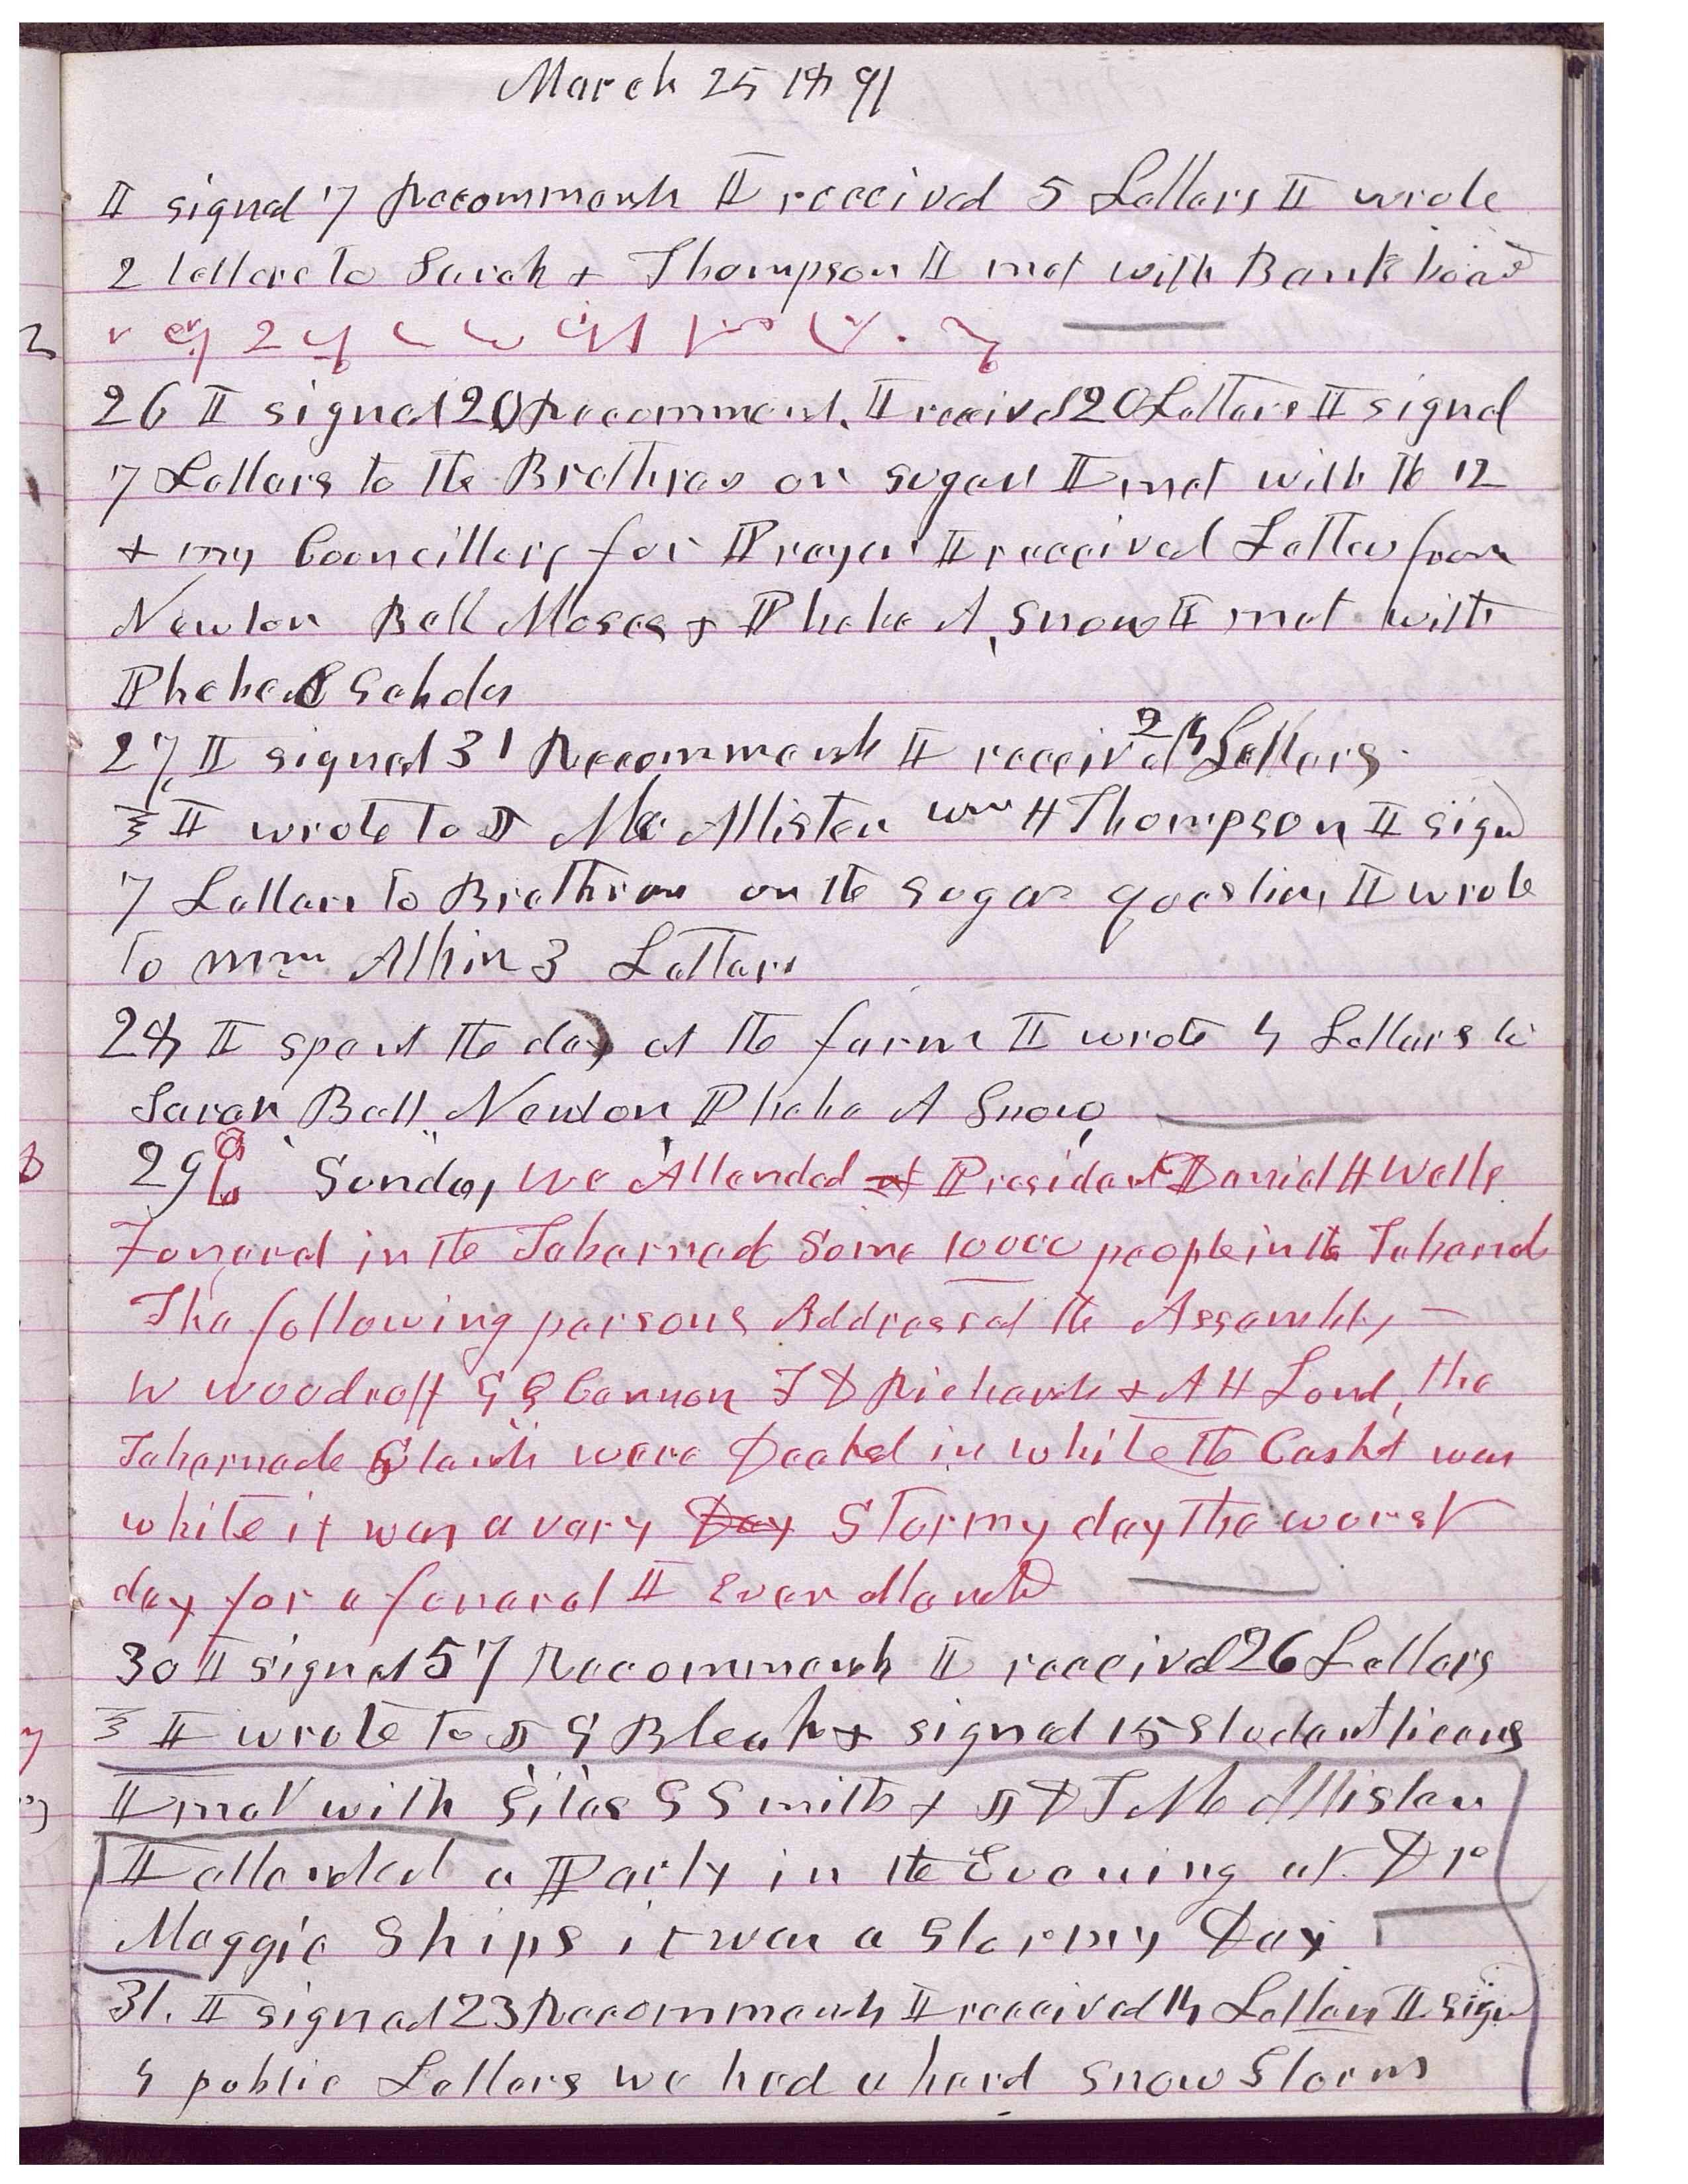 March 25 1891
I signed 7 Recommends I received 5 Letters I wrote
2 letters to Sarah & Thompson I met with Bank board
26 I signed 20 Recommend. I receivd 20 Letters I signed
7 Letters to the Brethren on sugar I met with th 12
& my Councillors for Prayer I received Letters from
Newton Bell Moses & Phebe A. Snow I met with
Phebe & Scholes
27 I signed 31 Recommends I received 24 Letters
I wrote to J D McAllister Wm H Thompson I signd
7 Letters to Brethren on the sugar question I wrote
to Atkin 3 Letters
28 I spent the day at the farm I wrote 4 Letters to
Sarah Bell, Newton Phebe A Snow
29 Sunday we Attended at President Daniel H Wells
Funeral in the Tabernacle Some 10000 people in the Tabernacl
The following persons Addressed the Assembly
W Woodruff G Q Cannon F D Richards & A H Lund, the
Tabernacle Stands were Decked in white the Caskt was
white it was a very Day Stormy day the worst
day for a funeral I Ever attended
30 I signed 57 Recommends I receivd 26 Letters
I wrote to J G Bleak & signed 15 Student licens
I met with Silas S Smith & J D T McAllister
I attended a Party in the Evening at Dr
Maggie Ships it was a stormy Day
31. I signed 23 Recommends I received 14 Letters I signd
4 public Letters we had a hard snow Storm